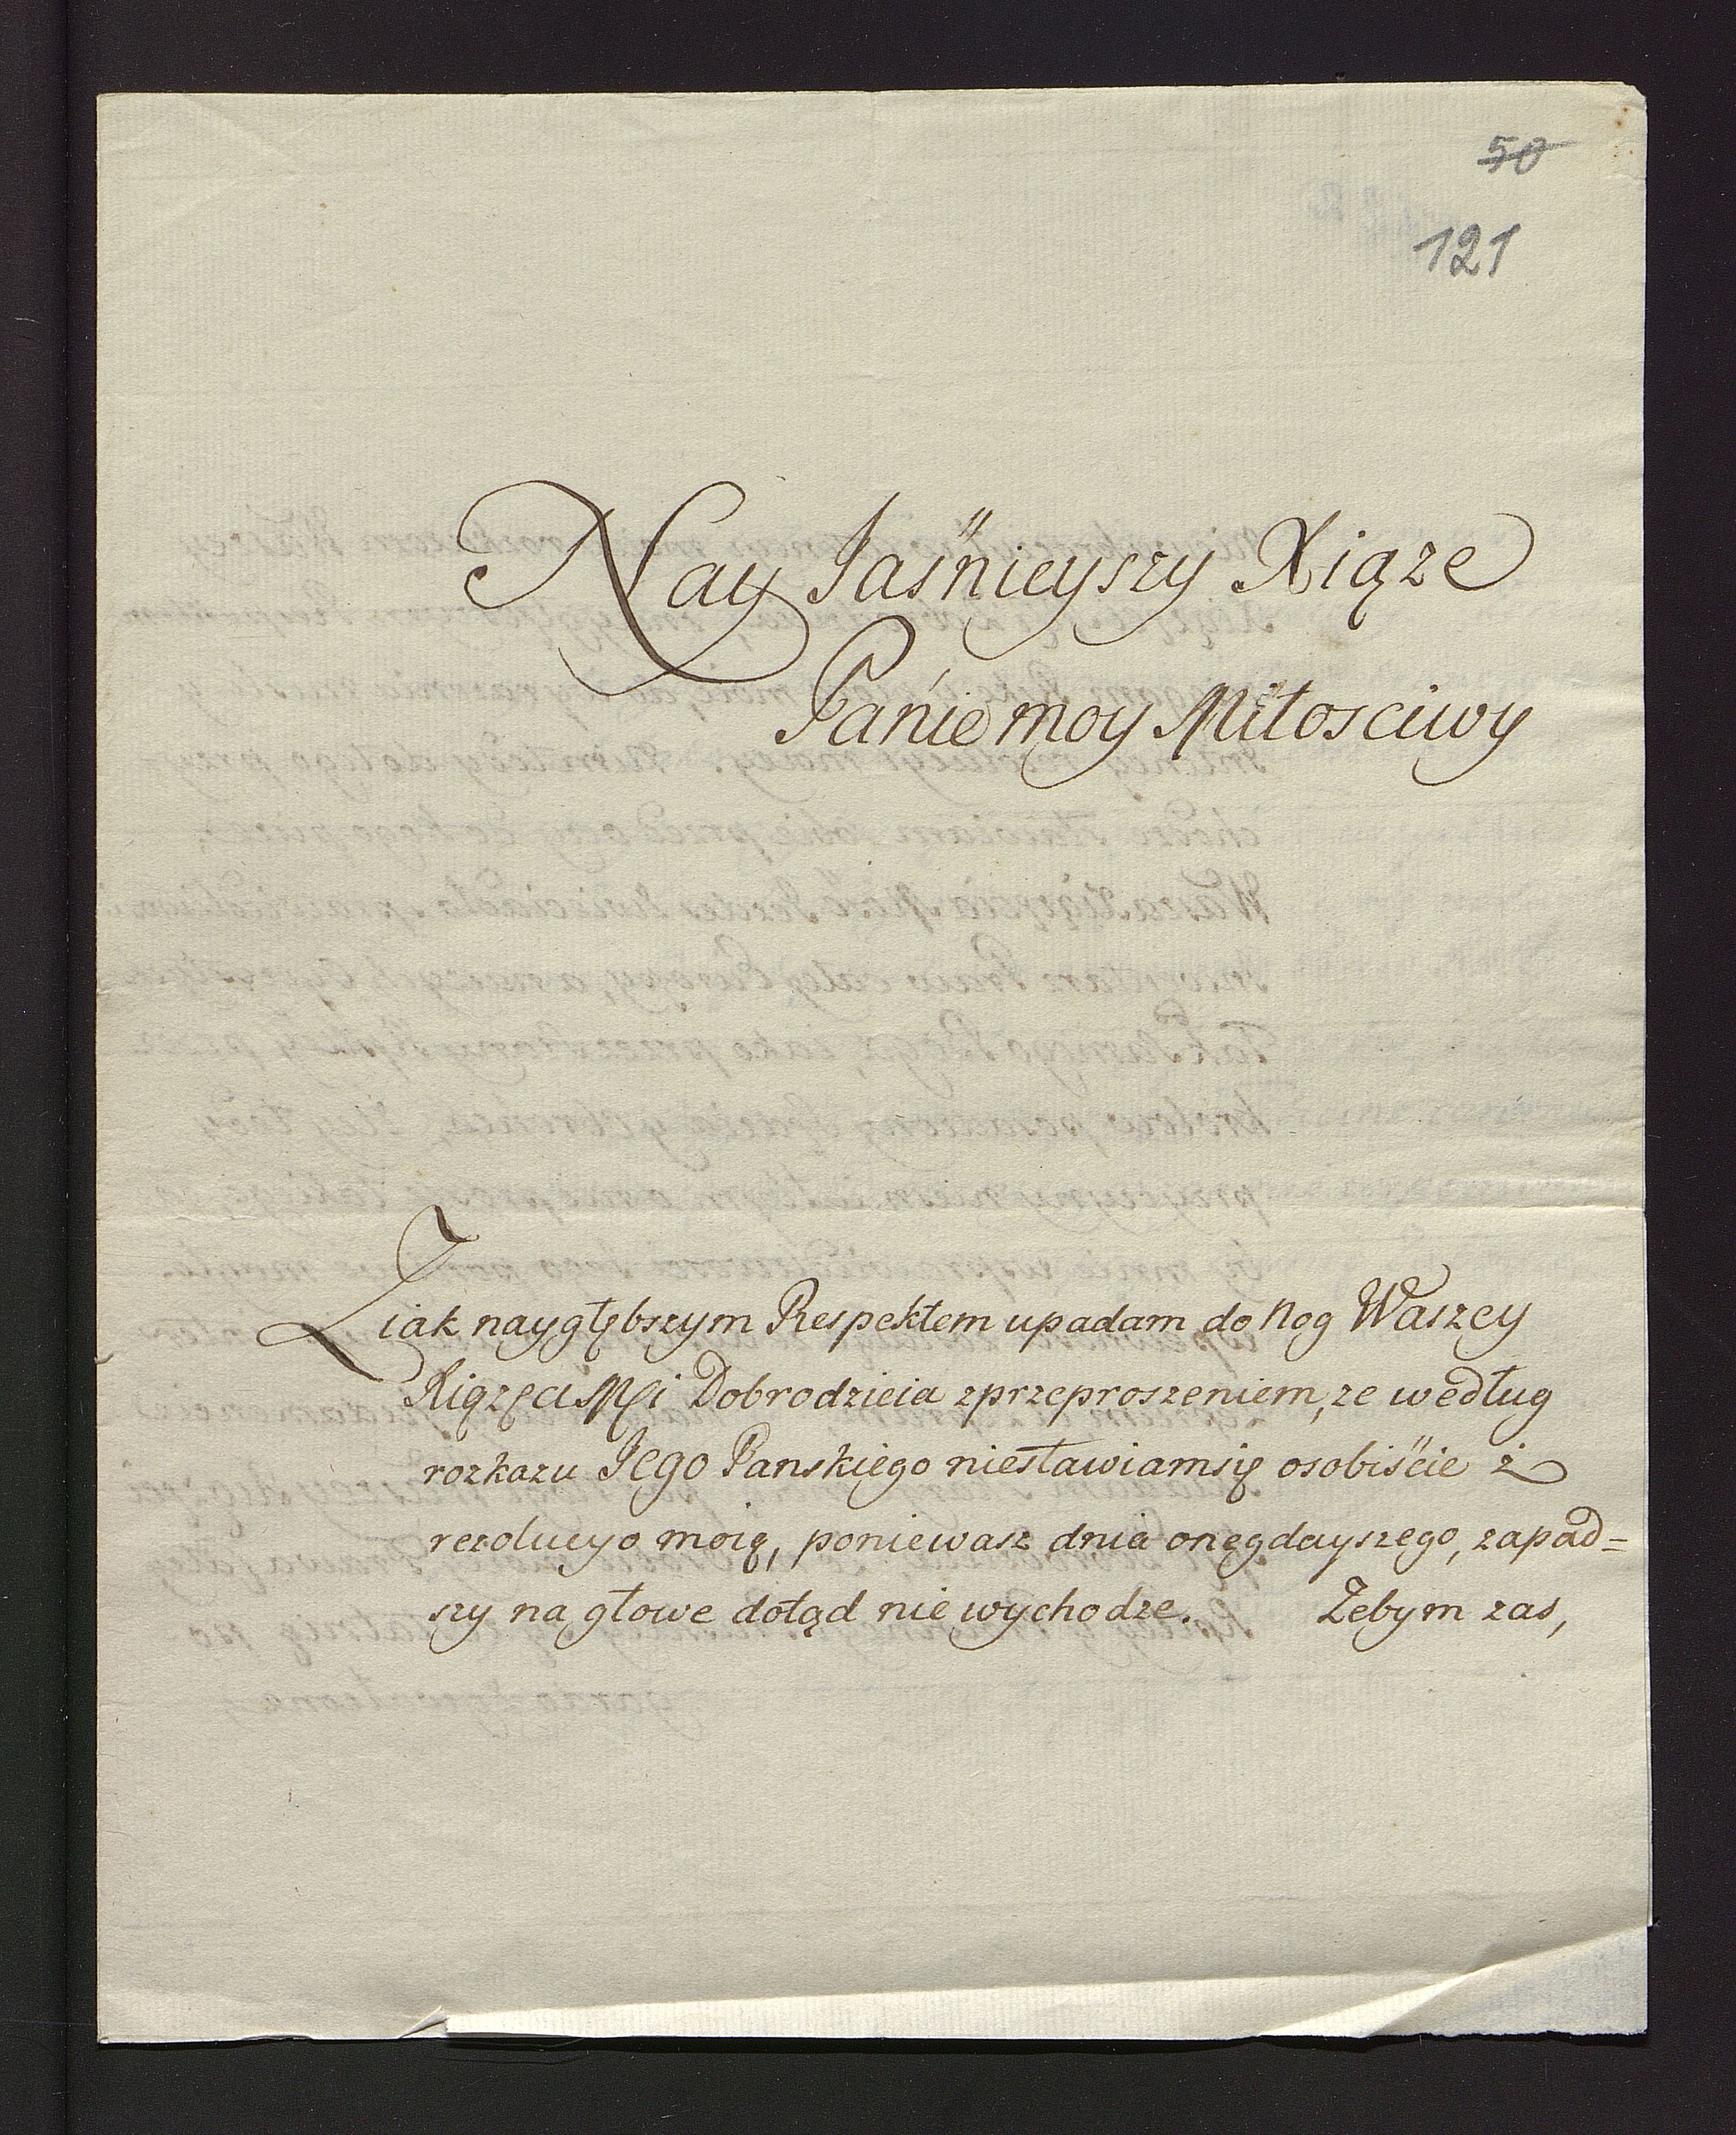 50
121
Nay Jaśnieyszy Xiąze
Panie moy Miłosciwy
Z iak naygłębszym Respektem upadam do Nog Waszey
Xiązęa Mći Dobrodzieia zprzeproszeniem, ze według
rozkazu Jego Panskiego niestawiamsię osobiście ż
rezolucyo moię, poniewasz dnia onęgdayszego, zapad=
szy na głowe dotąd nie wychodze. Zebym zas,